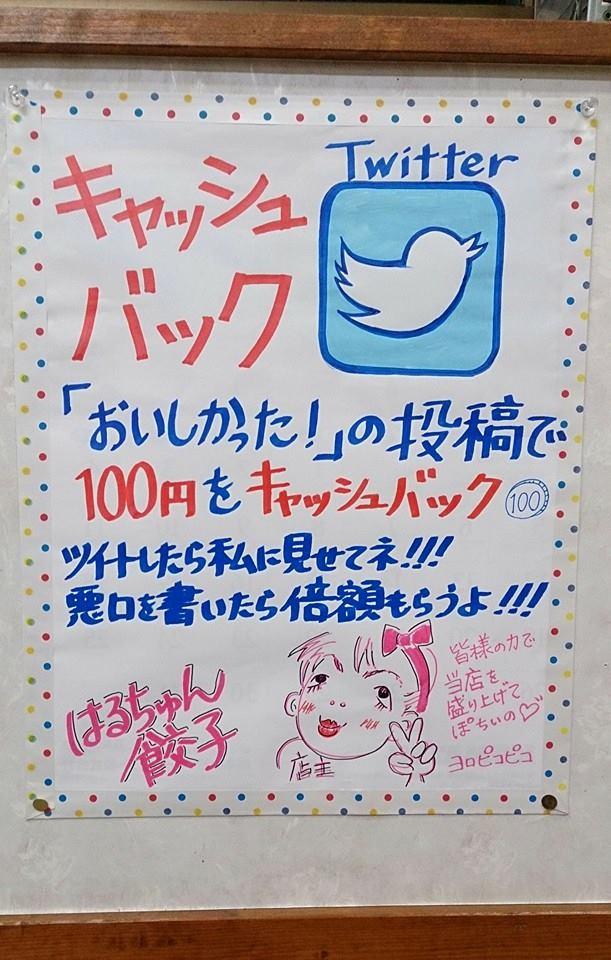 キャッシュ
バック
Twitter
「おいしかった!」の投稿で
100円をキャッシュバック
100
ツイトしたら私に見せてネ!!!
悪口を書いたら倍額もらうよ!!!
はるちゅん
餃子
店主
皆様の力で
当店を
盛り上げて
ぽちいの♡
ヨロピコピコ